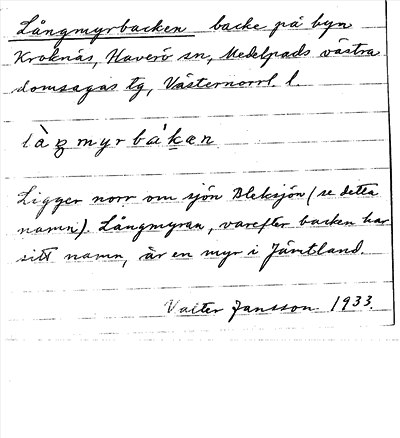 Långmyrbacken backe på byn
Kroknäs, Haverö sn, Medelpads västra
domsagas tg, Västernorrl. l.
l å̀ ŋ m y r b á k̬ e n
Ligger norr om sjön Bleksjön (se detta
namn). Långmyran, varefter backen har
sitt namn, är en myr i Jämtland.
Valter Jansson. 1933.